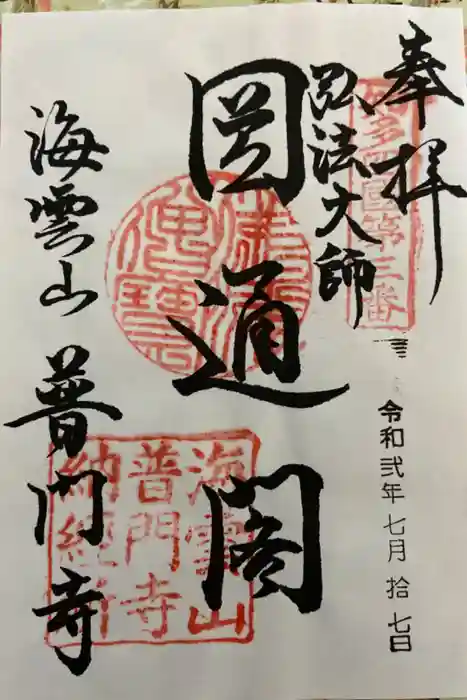 奉拝
知多四國第三番
弘法大師
圓通閣
海雲山 普門寺
海雲山
普門寺
納経所
令和弐年七月拾七日